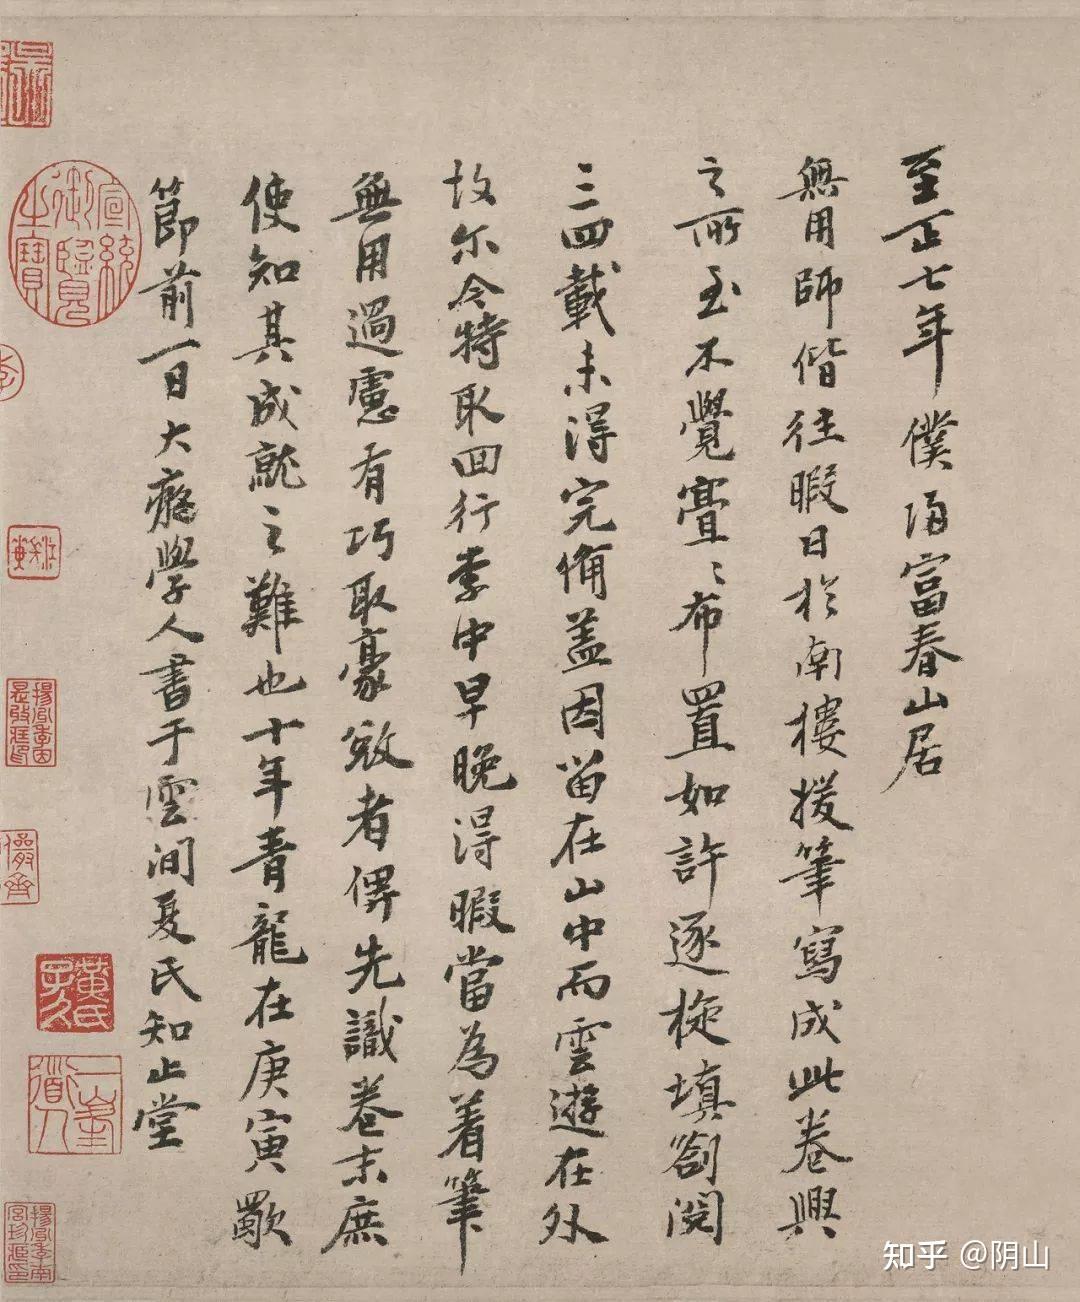 至正七年僕歸富春山居
無用師偕往暇日於南樓援筆寫成此卷興
之所至不覺亹〻布置如許逐旋填劄閱
三四載未得完備盖因留在山中而雲遊在外
故尔今特取回行李中早晚得暇當為着筆
無用過慮有巧取豪敓者俾先識卷末庶
使知其成就之難也十年青龍在庚寅歜
節前一日大癡學人書于雲間夏氏知止堂
宣統御覽之寶
黃氏子久
一峯道人
知乎 @阴山